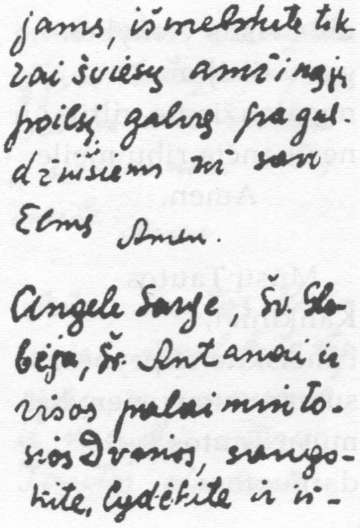 jams, išmelskite tik
rai šviesų amžinąjį
poilsį galvą pagul-
džiusiems už savo
Amen.
Angele Sarge, Šv. Glo-
bėja, Šv. Antanai ir
visos palaimintо-
sios Dvasios, saugo-
kite, lydėkite ir iš-